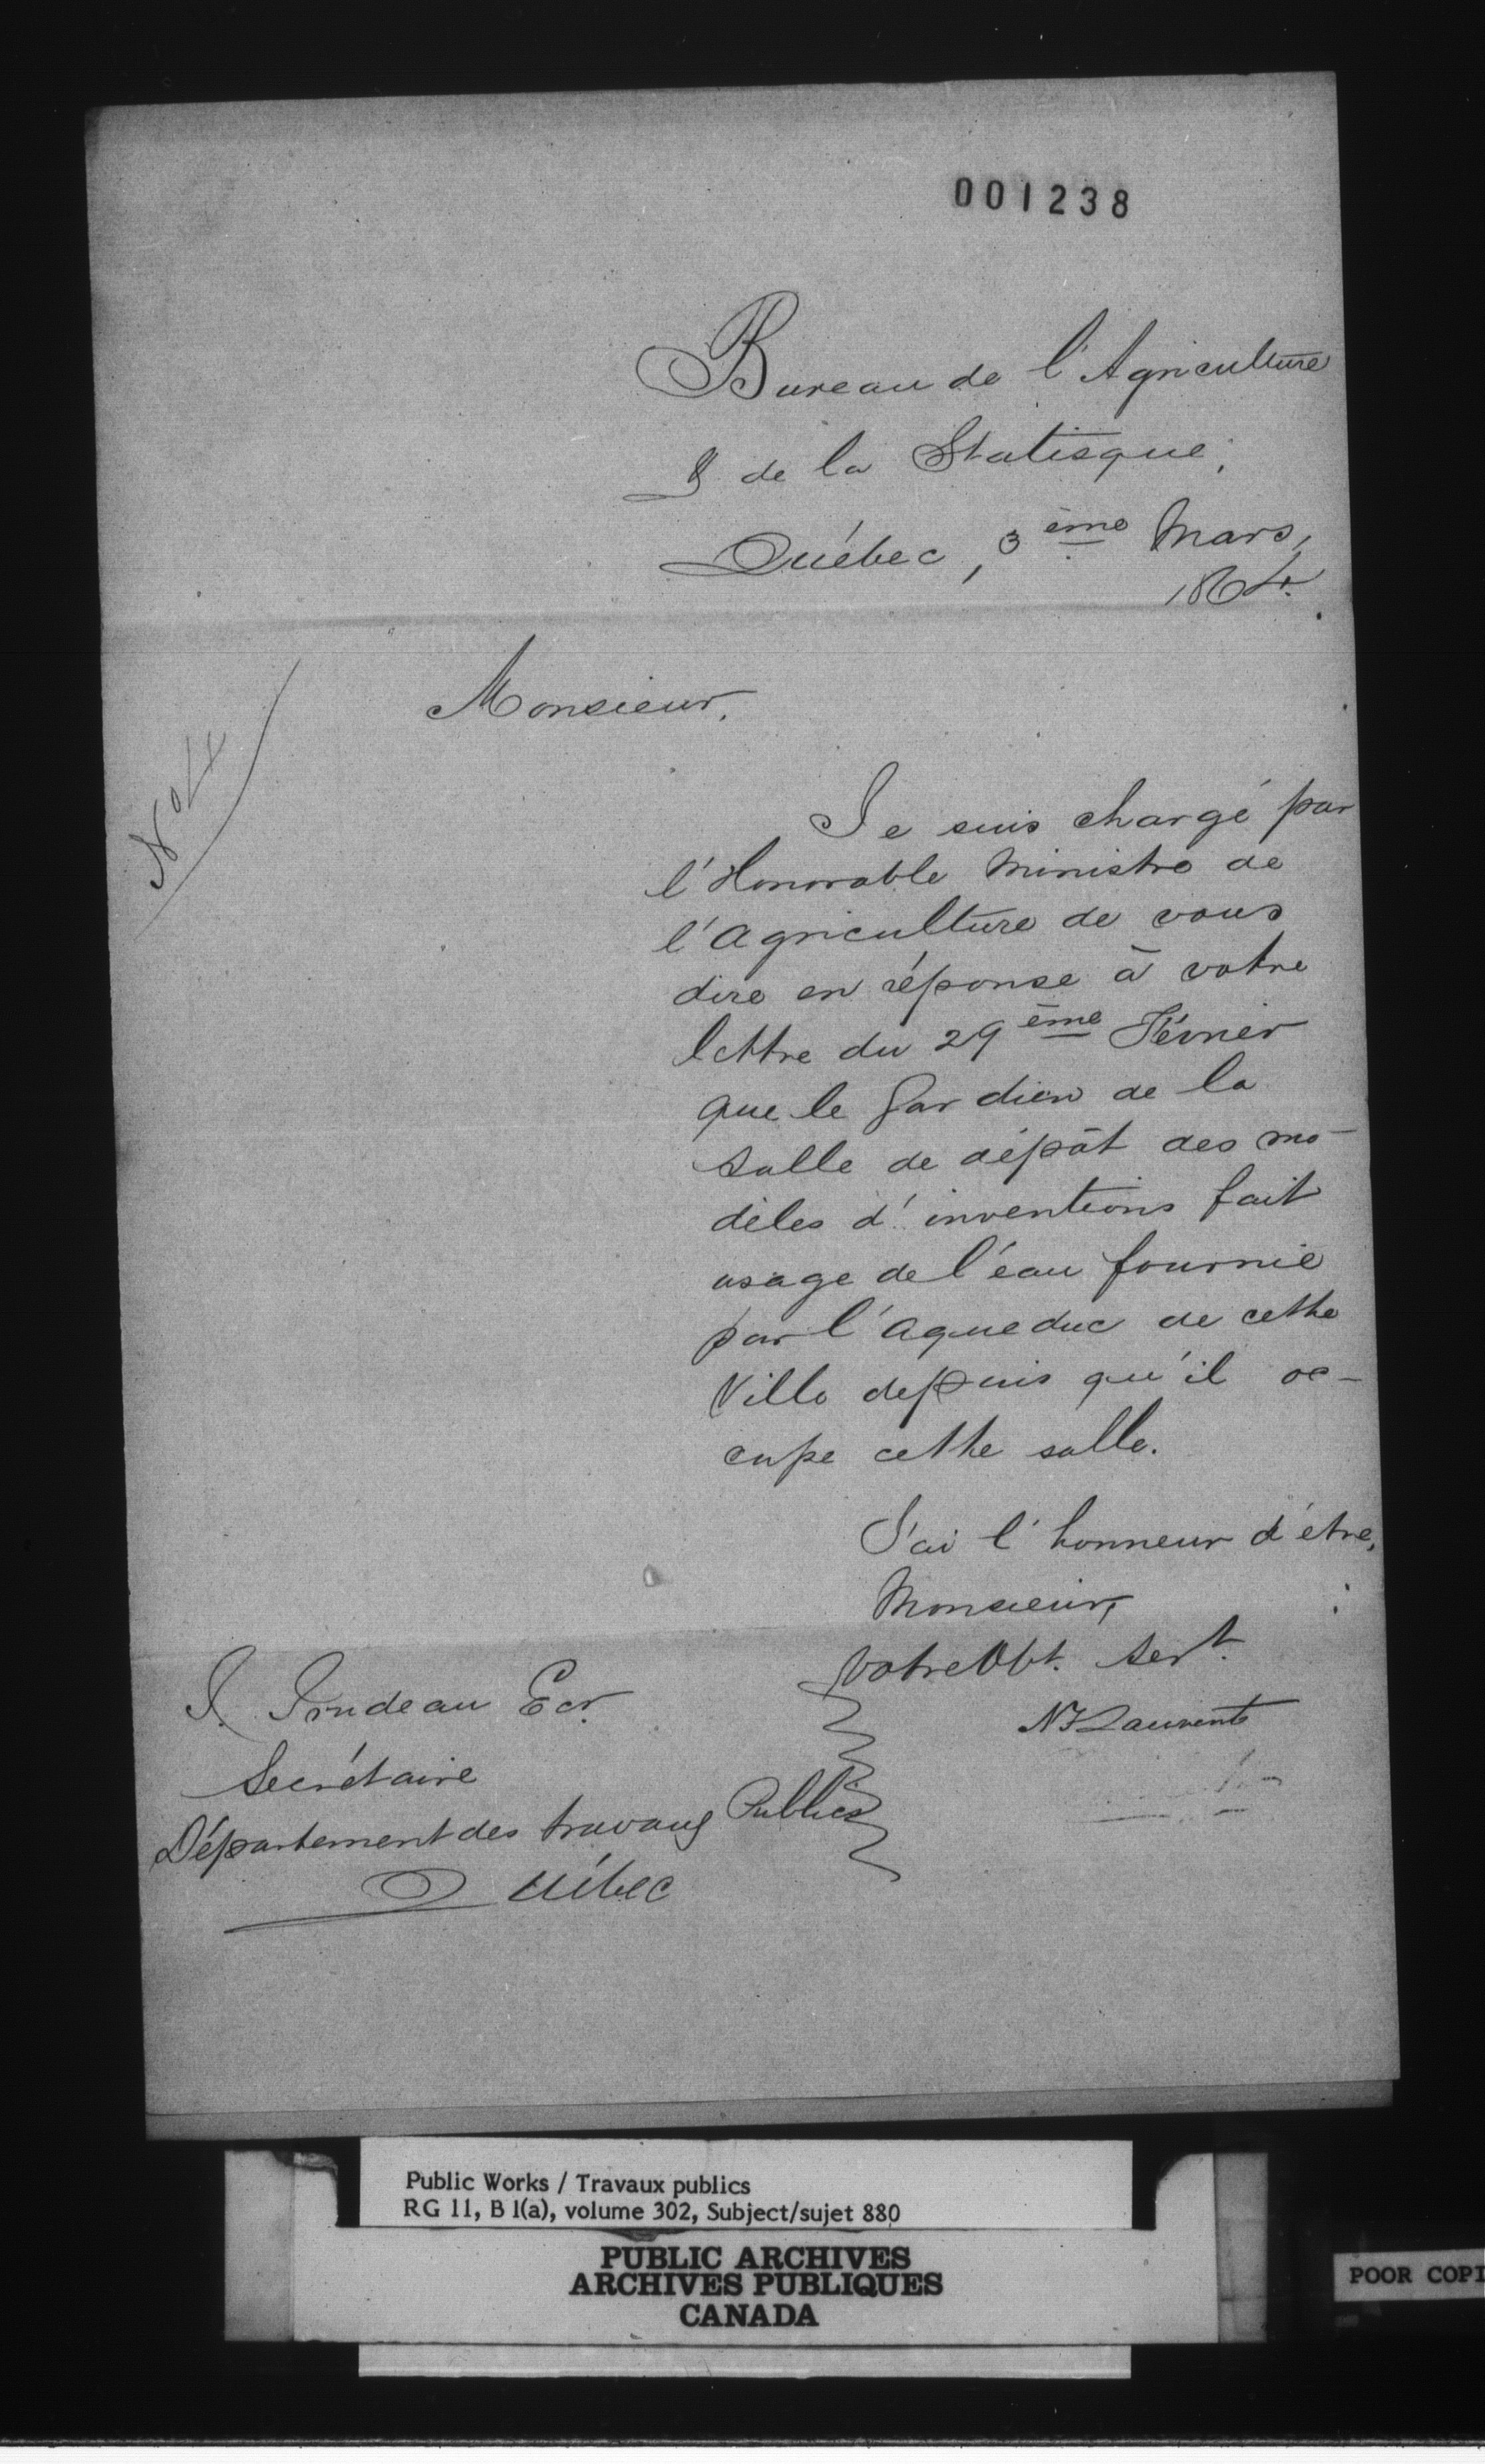 001238
Bureau de l'Agriculture
& de la Statisque,
Québec, 3ème Mars,
1864.
No 4
Monsieur,
Je suis chargé par
l'Honorable Ministre de
l'Agriculture de vous
dire en réponse à votre
lettre du 29ème Février
que le Gardien de la
Salle de dépôt des mo-
dèles d'inventions fait
usage de l'éau fournie
par l'Aqueduc de cette
Ville depuis qu'il oc-
cupe cette salle.
J'ai l'honneur d'être,
Monsieur,
Votre Obt. Sert.
Laurent
Trudeau Ecr.
Secrétaire
Département des travaux Publics
Québec
Public Works / Travaux publics
RG 11, B 1(a), volume 302, Subject/sujet 880
PUBLIC ARCHIVES
ARCHIVES PUBLIQUES
CANADA
POOR COPI